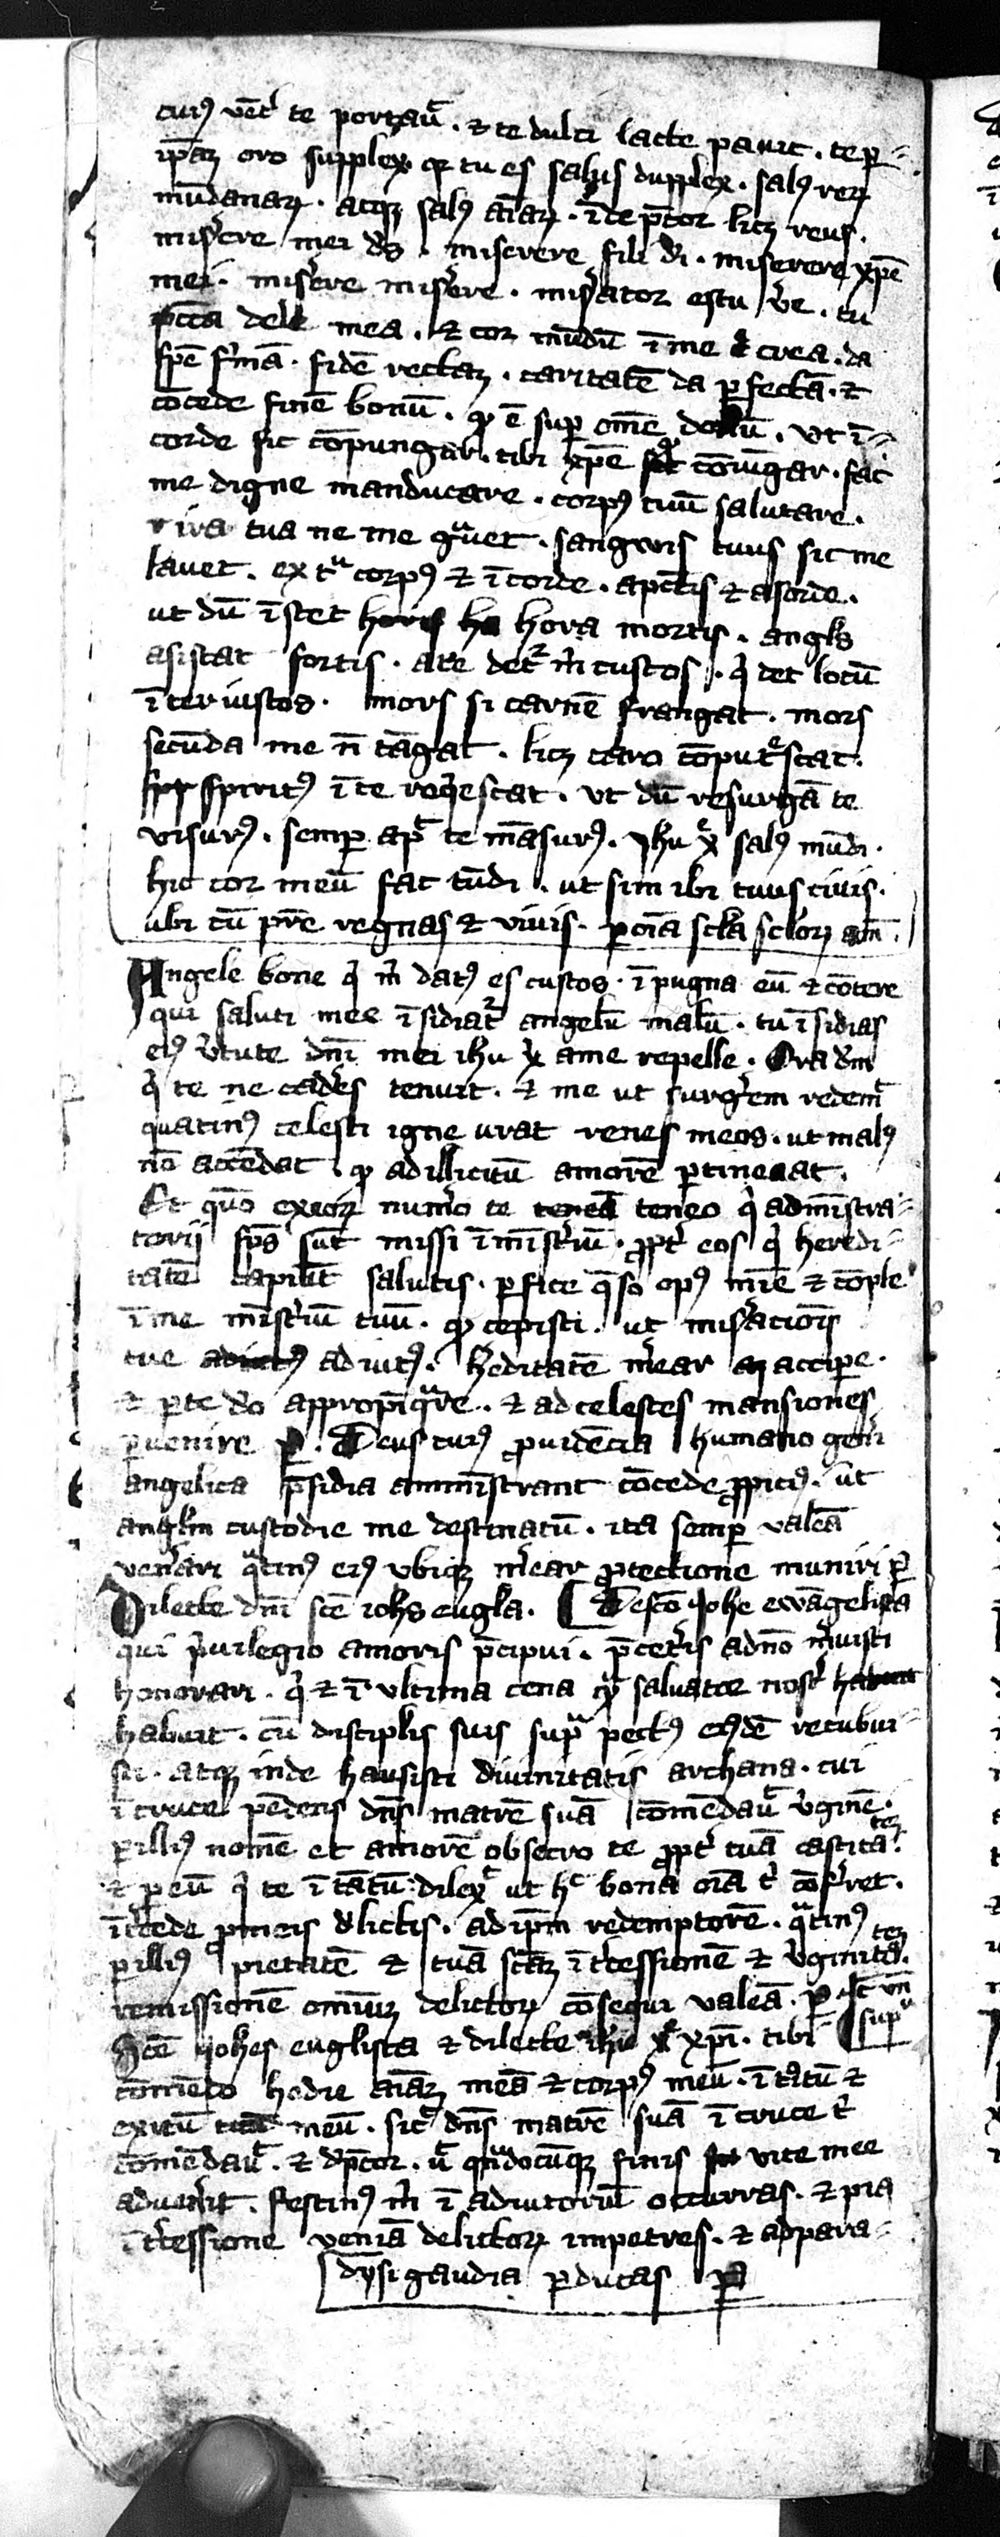 cui9 vēt͛ te portauͭ. ⁊ te dulci lacte pauit. te per
ip̄aꝫ oro supplex. qr tu es salus dupplex. sal9 reꝝ
mūdanaꝝ. atqꝫ sal9 aīaꝝ. ī te p̄ctor licꝫ reus.
mis͛ere mei ds. miserere fili di. miserere xp̄e
mei. mis͛ere mis͛ere. mis͛ator es tu u͛e. tu
pcc̄a dele mea. ⁊ cor mūdū ī me crea. da
spē f͛mā. fidē rectaꝫ. caritatē da ꝑfectā. ⁊
cōcede finē bonū. qd ē suꝑ om̄e donū. vt ī
corde sic cōpungar. tibi xp̄e cōiūgar. fac
me digne manducare. corp9 tuū salutare.
ira tua ne me gͣuet. sangwis tuus sic me
lauet. ext͛ͣ corp9 ⁊ ī corde. a pctis ⁊ a sorde.
ut dū īstet horis ha hora mortis. angl̄s
asistat fortis. a te det͛ m̄ custos. qͥ det locū
īter iustos. mors si carnē frangat. mors
secūda me n̄ tāgat. licꝫ caro cōput͛scat.
spr spirit9 ī te reqͥescat. vt dū resurgā te
visur9. semꝑ apͭ te māsur9. Jhu xͤ sal9 mūdi.
hic cor meū fac tūdi. ut sim ibi tuus ciuis.
ubi cū pr̄e regnas ⁊ viuis. ꝑ oīa scl̄a scl̄oꝝ am̄.
Angele bone qͥ m̄ dat9 es custos. īpugna eū ⁊ cōtere
qui saluti mee īsidiat͛ angelū malū. tu īsidias
ei9 v͛tute dn̄i mei ihu x̄ a me repelle. Ora dm̄
qͥ te ne cad͛es tenuit. ⁊ me ut surg͛em redemͭ
quatin9 celesti igne urat renes meos. ut mal9
nō accēdat qd ad illicitū amorē ꝑtineat.
Et qm̄o ex eoꝝ num͛o te teneo qͥ admīstra
torij sp̄s sūt missi ī mīst͛iū. ꝓpt͛ eos qͥ heredi
tatē capiūt salutis. ꝑfice q̄so op9 m̄ie ⁊ cōple
ī me mīst͛iū tuū. qd cepisti. ut mis͛acionis
tue adiut9. h͛editatē m͛ear accipe.
⁊ ꝑ te do͛ appropīqͣre. ⁊ ad celestes mansiones
ꝑuenire ꝑ. Deus cui9 ꝓuidēcia humano gen͛i
angelica p̄sidia amīnistrant cōcede ꝓpici9. ut
angl̄m custodie me destinatū. ita semꝑ valeā
ven͛ari qͣtin9 ei9 vbiqꝫ m͛ear ꝓtectione muniri ꝑ
Dilecte dn̄i sc̄e iohs eugl̄a. De scō Johe ewāgelista
qui pͥuilegio amoris p̄cipui. p̄ cet͛is ad nō m͛uisti
honorari. qͥ ⁊ ī vltima cena qͣ saluator nost͛
habuit. cū disciplis suis supͣ pect9 ei9dē recubui
sti. atqꝫ inde hausisti diuinitatis archana. cui
ī cruce pēdens dn̄s matrē suā cōmēdauͭ v͛ginē.
ꝑ illi9 nomē et amorē obsecro te ꝓpt͛ tuā castitateꝫ
⁊ ꝑ eū qͥ te ī tātū dilexͭ ut hͨ bona oīa t͛ cōf͛ret.
īt͛cede ꝑ meis d͛lictis. ad ip̄m redemptorē. qͣtin9
ꝑ illi9 pietatē ⁊ tuā sc̄aꝫ īt͛cessionē ⁊ v͛ginitateꝫ
remissionē omniūꝫ delictoꝝ cōsequi valeā. ꝑ
supͣ
Sc̄e Johes euglista ⁊ dilecte ihu xp̄i. tibi
cōmēdo hodie aīaꝫ meā ⁊ corp9 meū. ītͦitū ⁊
exitū meū. sic dn̄s matrē suā ī cruce t͛
cōmēdauͭ. ⁊ dp̄cor. uͭ qn̄docūqꝫ finis vite mee
aduen͛it. festin9 m̄ ī adiutoriū occurras. ⁊ pia
īt͛cessione veniā delictoꝝ impetres. ⁊ ad para
dysi gaudia ꝑducas ꝑ